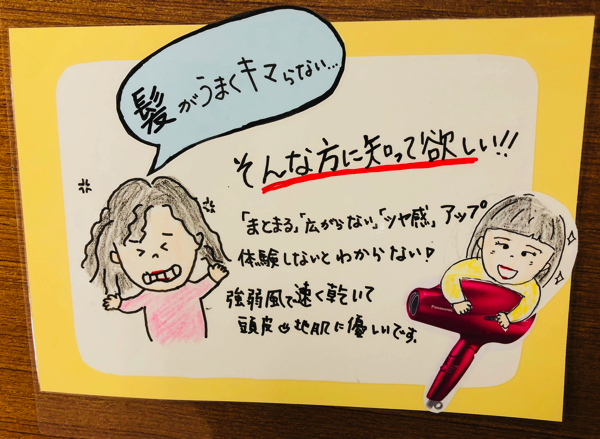 髪がうまくキマらない…
そんな方に知って欲しい!!
「まとまる」「広がらない」「ツヤ感」アップ
体験しないとわからない♡
強弱風で速く乾いて
頭皮や地肌に優しいです。
Panasonic